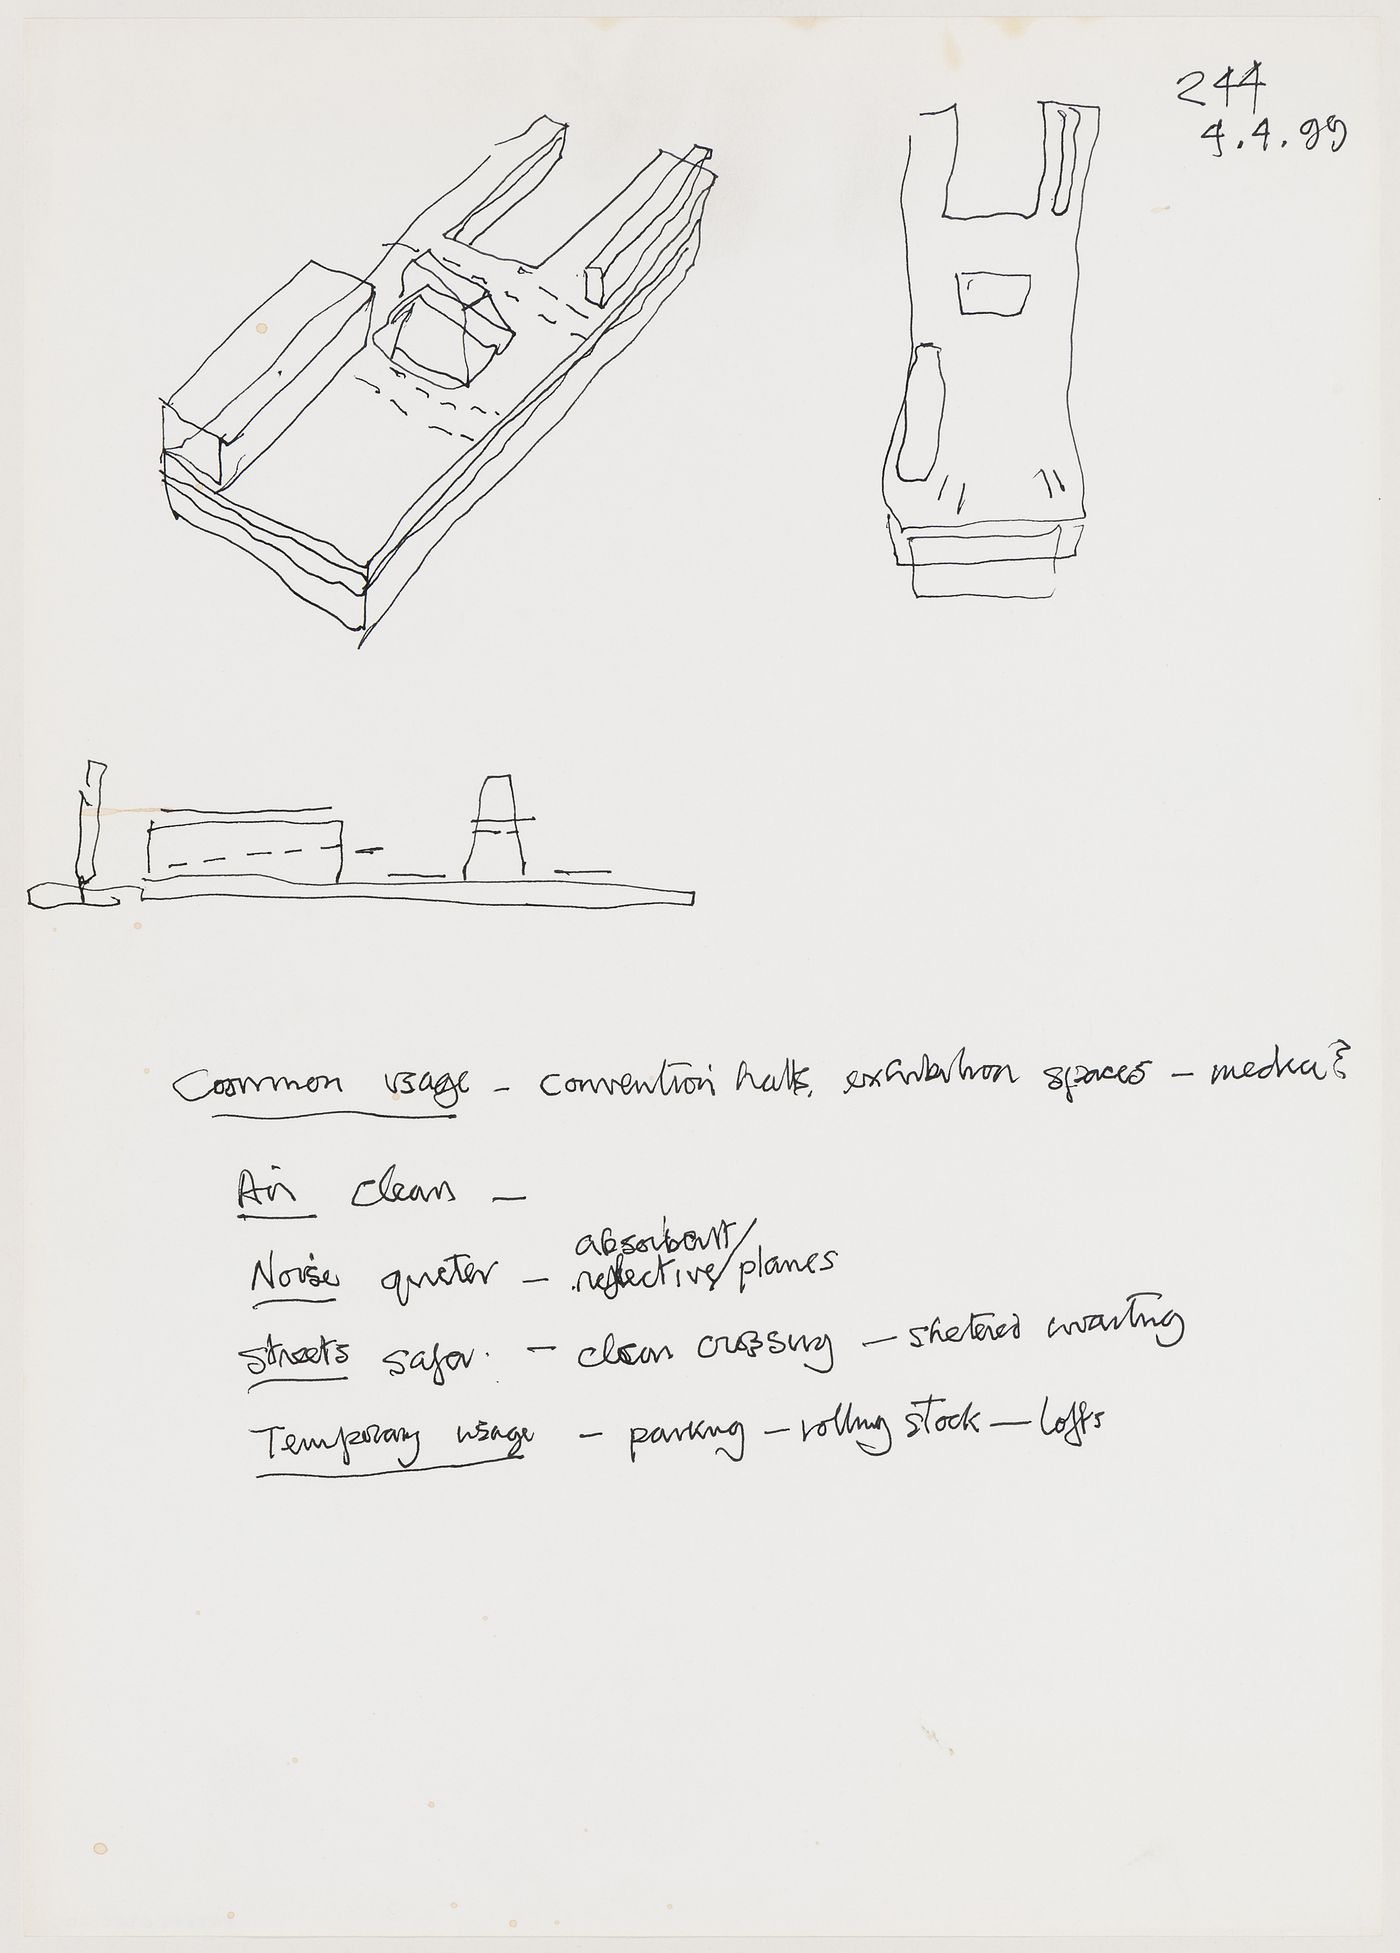 244
4.4.99
Common usage - convention halls, exhibition spaces - media?
Air clean -
absorbent/
Noise quieter - reflective/planes
Streets safer. - clean crossing - sheltered waiting
Temporary usage - parking - rolling stock - lofts